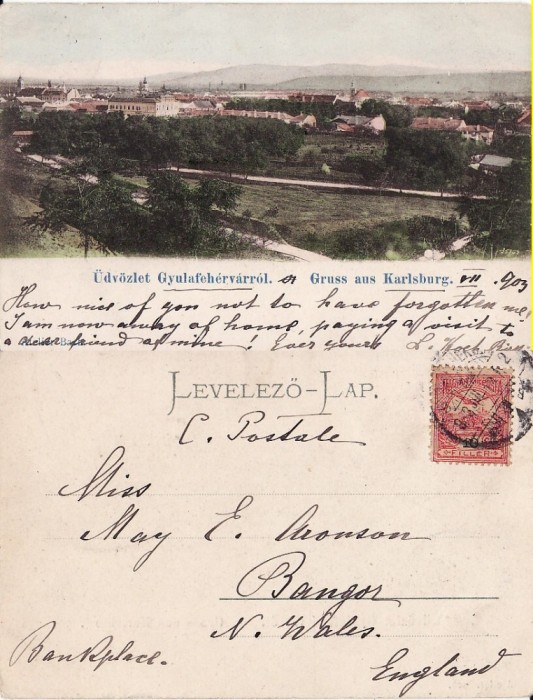 Üdvözlet Gyulafehérvárról. Gruss aus Karlsburg. VII 903
How nice of you not to have forgotten me,
I am now away of home, paying a visit to
a dear friend of mine! Ever yours L. Koch
LEVELEZŐ-LAP.
C. Postale
10
FILLER
Miss
May E. Aronson
Bangor
N. Wales.
Bankplace.
England